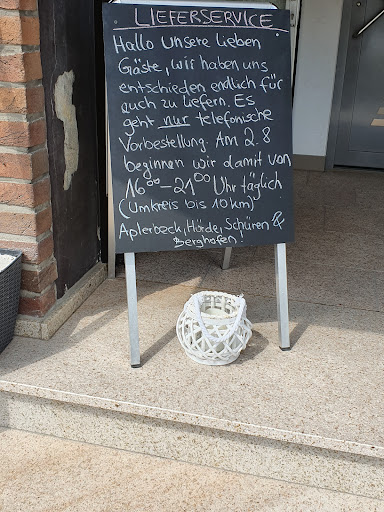 LIEFERSERVICE
Hallo unsere lieben
Gäste, wir haben uns
entschieden endlich für
euch zu liefern. Es
geht nur telefonische
Vorbestellung. Am 2.8
beginnen wir damit von
16⁰⁰-21⁰⁰ Uhr täglich
(Umkreis bis 10km)
Aplerbeck, Hörde, Schüren &
Berghofen!